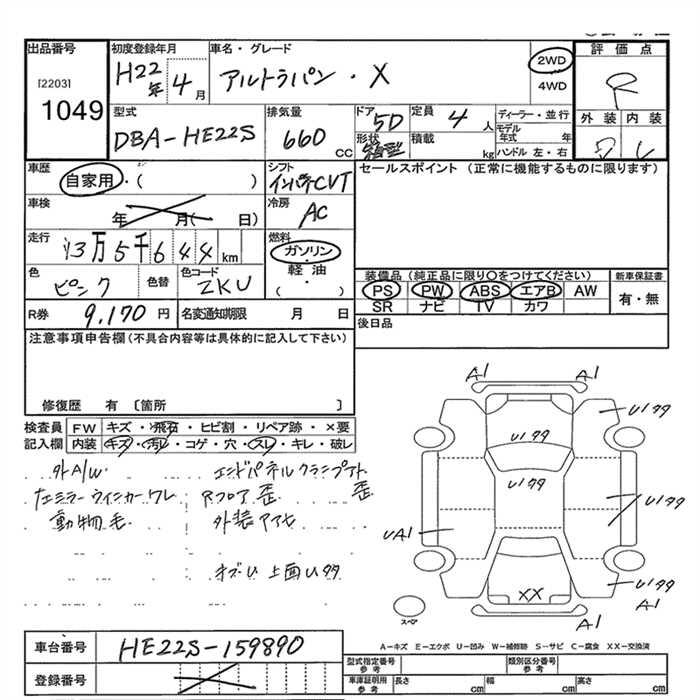 出品番号
[2203]
1049
初度登録年月
H22年 4月
車名・グレード
アルトラパン・X
2WD
4WD
評価点
R
外装 内装
型式
DBA-HE22S
排気量
660 CC
ドア
5D
形状
箱型
定員
4 人
積載
kg
ディーラー・並行
モデル年式 年
ハンドル 左・右
車歴
自家用・( )
シフト
インパネCVT
セールスポイント (正常に機能するものに限ります)
車検
年 月( 日)
冷房
AC
走行
13万5千644km
燃料
ガソリン
・
軽油
( ・ )
色
ピンク
色替
色コード
ZKU
装備品 (純正品に限り〇をつけてください)
PS PW ABS エアB AW
SR ナビ TV カワ
新車保証書
有・無
R券
9,170 円
名変通知期限 月 日
後日品
注意事項申告欄(不具合内容等は具体的に記入して下さい)
修復歴 有 〔箇所 〕
検査員記入欄
FW キズ・飛石・ヒビ割・リペア跡・×要
内装 キズ・汚レ・コゲ・穴・スレ・キレ・破レ
外A/W
左ミラーウィンカーワレ
動物毛
エンドパネルクランプアト
Rフロア歪
歪
外装アセ
上面Uタタ
A1 A1
Uタタ
Uタタ
Uタタ
Uタタ
UA1
XX
Uタタ
A1
A1
スペア
A-キズ E-エクボ U-凹み W-補修跡 S-サビ C-腐食 XX-交換済
車台番号
HE22S-159890
登録番号
型式指定番号 参考
類別区分番号 参考
車庫証明用 参考
長さ cm 幅 cm 高さ cm